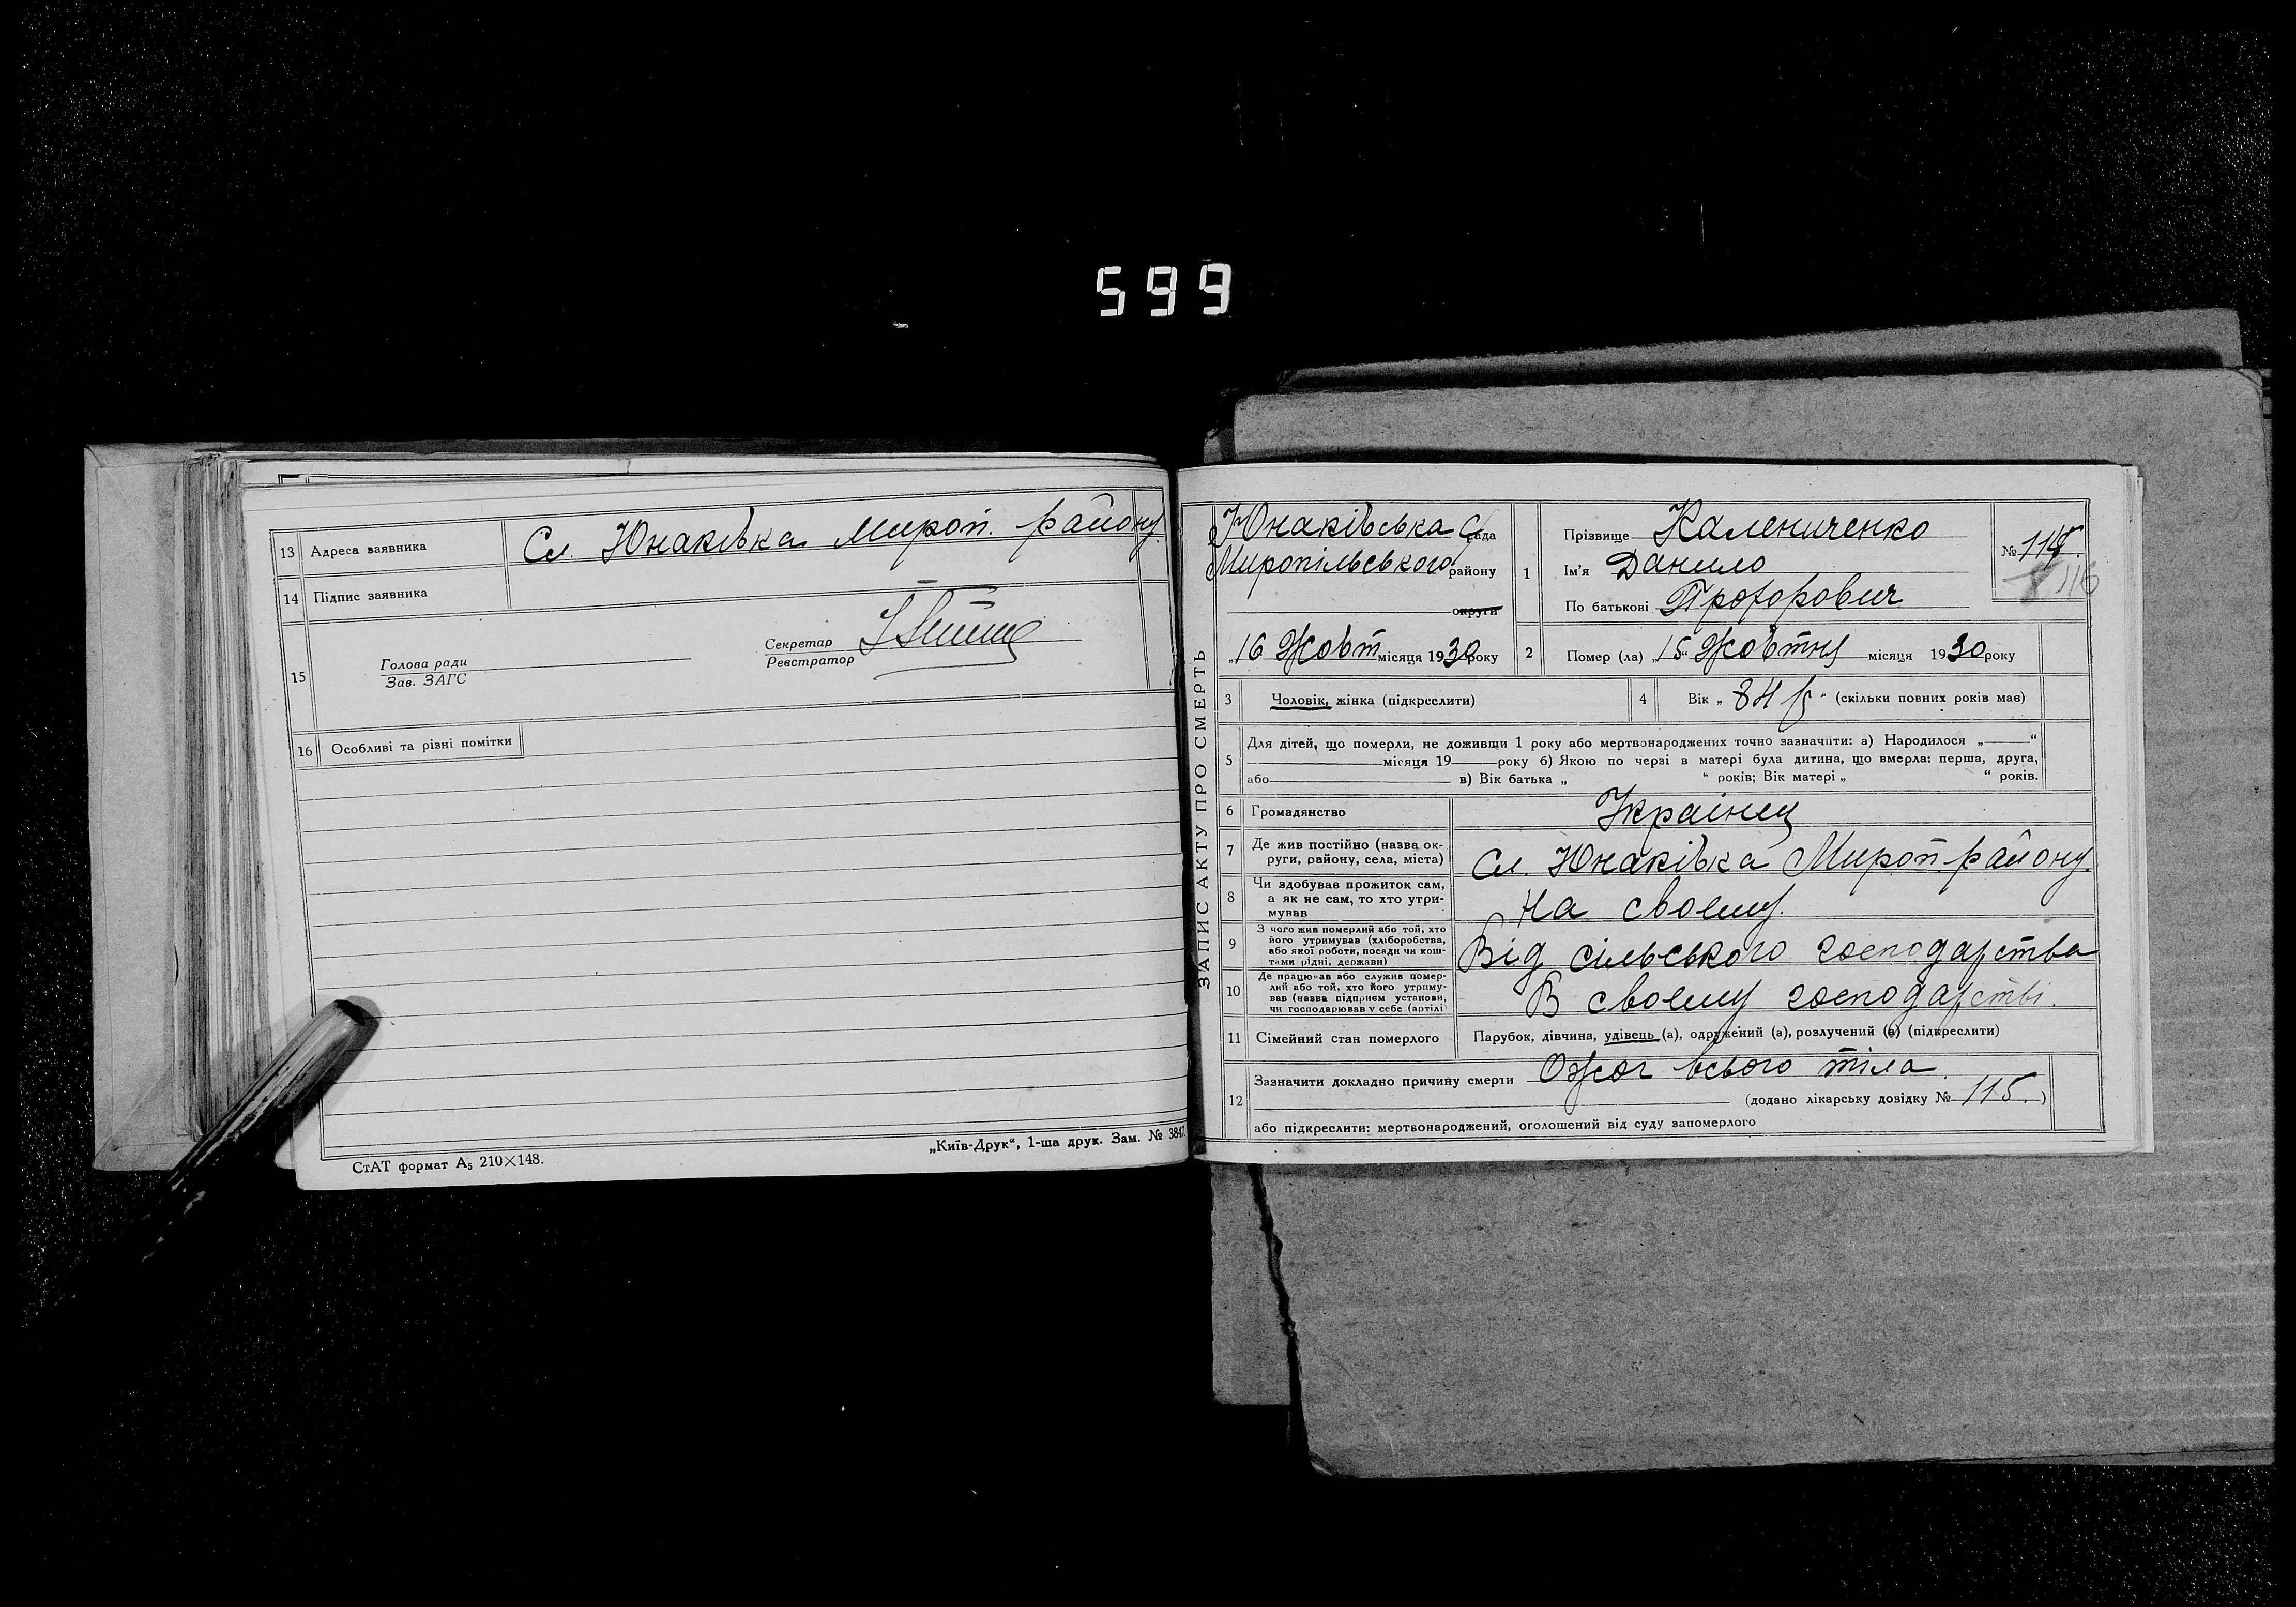 599
13 Адреса заявника Сл. Юнаківка Мироп. району.
14 Підпис заявника
15 Голова ради
Зав. ЗАГС
Секретар
Реєстратор
16 Особливі та різні помітки
СтАТ формат А5 210×148.
„Київ-Друк“, 1-ша друк. Зам. № 3847.
ЗАПИС АКТУ ПРО СМЕРТЬ
Юнаківська С/рада
Миропільського району
округи
„16 Жовт місяця 1930 року
1 Прізвище Калениченко
Ім'я Данило
По батькові Прохорович
№ 115.
116
2 Помер (ла) „15“ Жовтня місяця 1930 року
3 Чоловік, жінка (підкреслити)
4 Вік „ 84 р “ (скільки повних років мав)
5 Для дітей, що померли, не доживши 1 року або мертвонароджених точно зазначити: а) Народилося „ “
місяця 19 року б) Якою по черзі в матері була дитина, що вмерла: перша, друга,
або в) Вік батька „ “ років; Вік матері „ “ років.
6 Громадянство Українец
7 Де жив постійно (назва ок-
руги, району, села, міста) Сл. Юнаківка Мироп. району.
8 Чи здобував прожиток сам,
а як не сам, то хто утри-
мував На своему.
9 З чого жив померлий або той, хто
його утримував (хліборобства,
або якої роботи, посади чи кош-
тами рідні, держави) Від сільського господарства
10 Де працював або служив помер-
лий або той, хто його утриму-
вав (назва підприєм установи,
чи господарював у себе (артілі) В своему господарстві.
11 Сімейний стан померлого Парубок, дівчина, удівець (а), одружений (а), розлучений (а) (підкреслити)
12 Зазначити докладно причину смерти Ожог всього тіла.
(додано лікарську довідку № 115. )
або підкреслити: мертвонароджений, оголошений від суду запомерлого